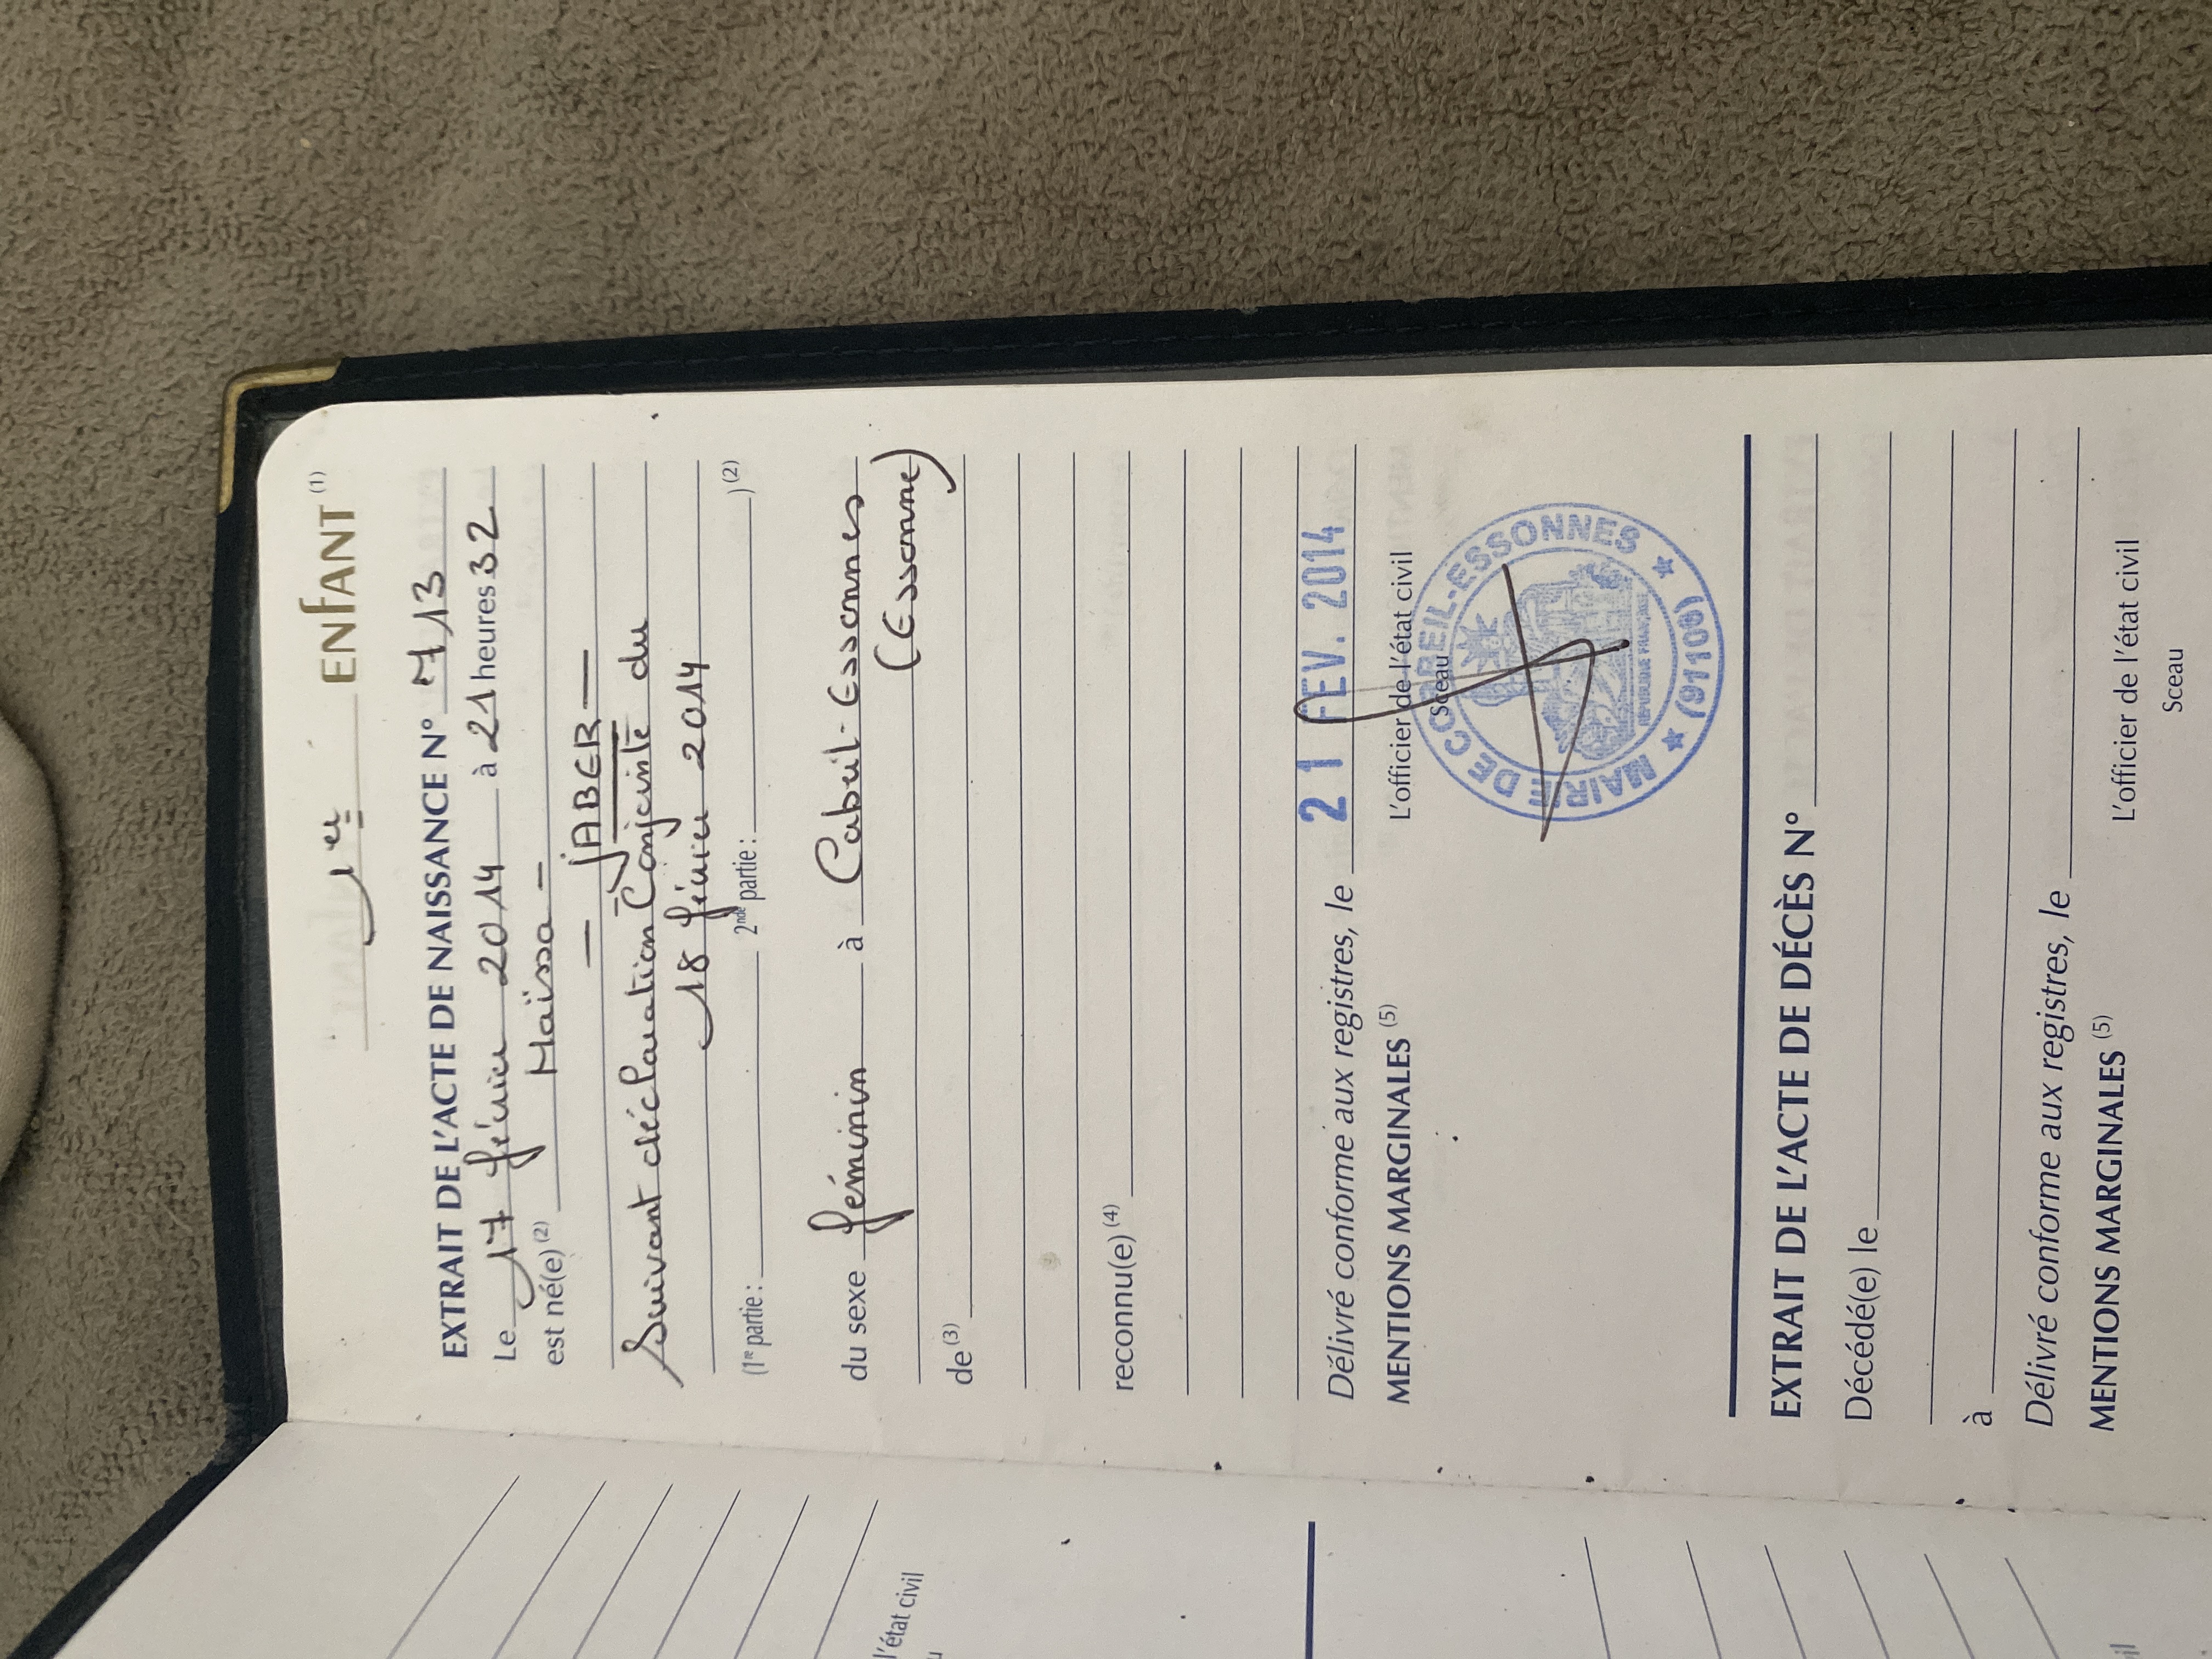 1er ENFANT (1)
EXTRAIT DE L'ACTE DE NAISSANCE N° 713
Le 17 février 2014 à 21 heures 32
est né(e) (2) Maïssa -
— JABER —
Suivant déclaration Conjointe du
18 février 2014
(1re partie : 2nde partie : ) (2)
du sexe féminin à Corbeil-Essonnes
(Essonne)
de (3)
reconnu(e) (4)
Délivré conforme aux registres, le 21 FEV. 2014
MENTIONS MARGINALES (5)
L'officier de l'état civil
Sceau
MAIRIE DE CORBEIL-ESSONNES
★ (91100) ★
RÉPUBLIQUE FRANÇAISE
EXTRAIT DE L'ACTE DE DÉCÈS N°
Décédé(e) le
à
Délivré conforme aux registres, le
MENTIONS MARGINALES (5)
L'officier de l'état civil
Sceau
l'état civil